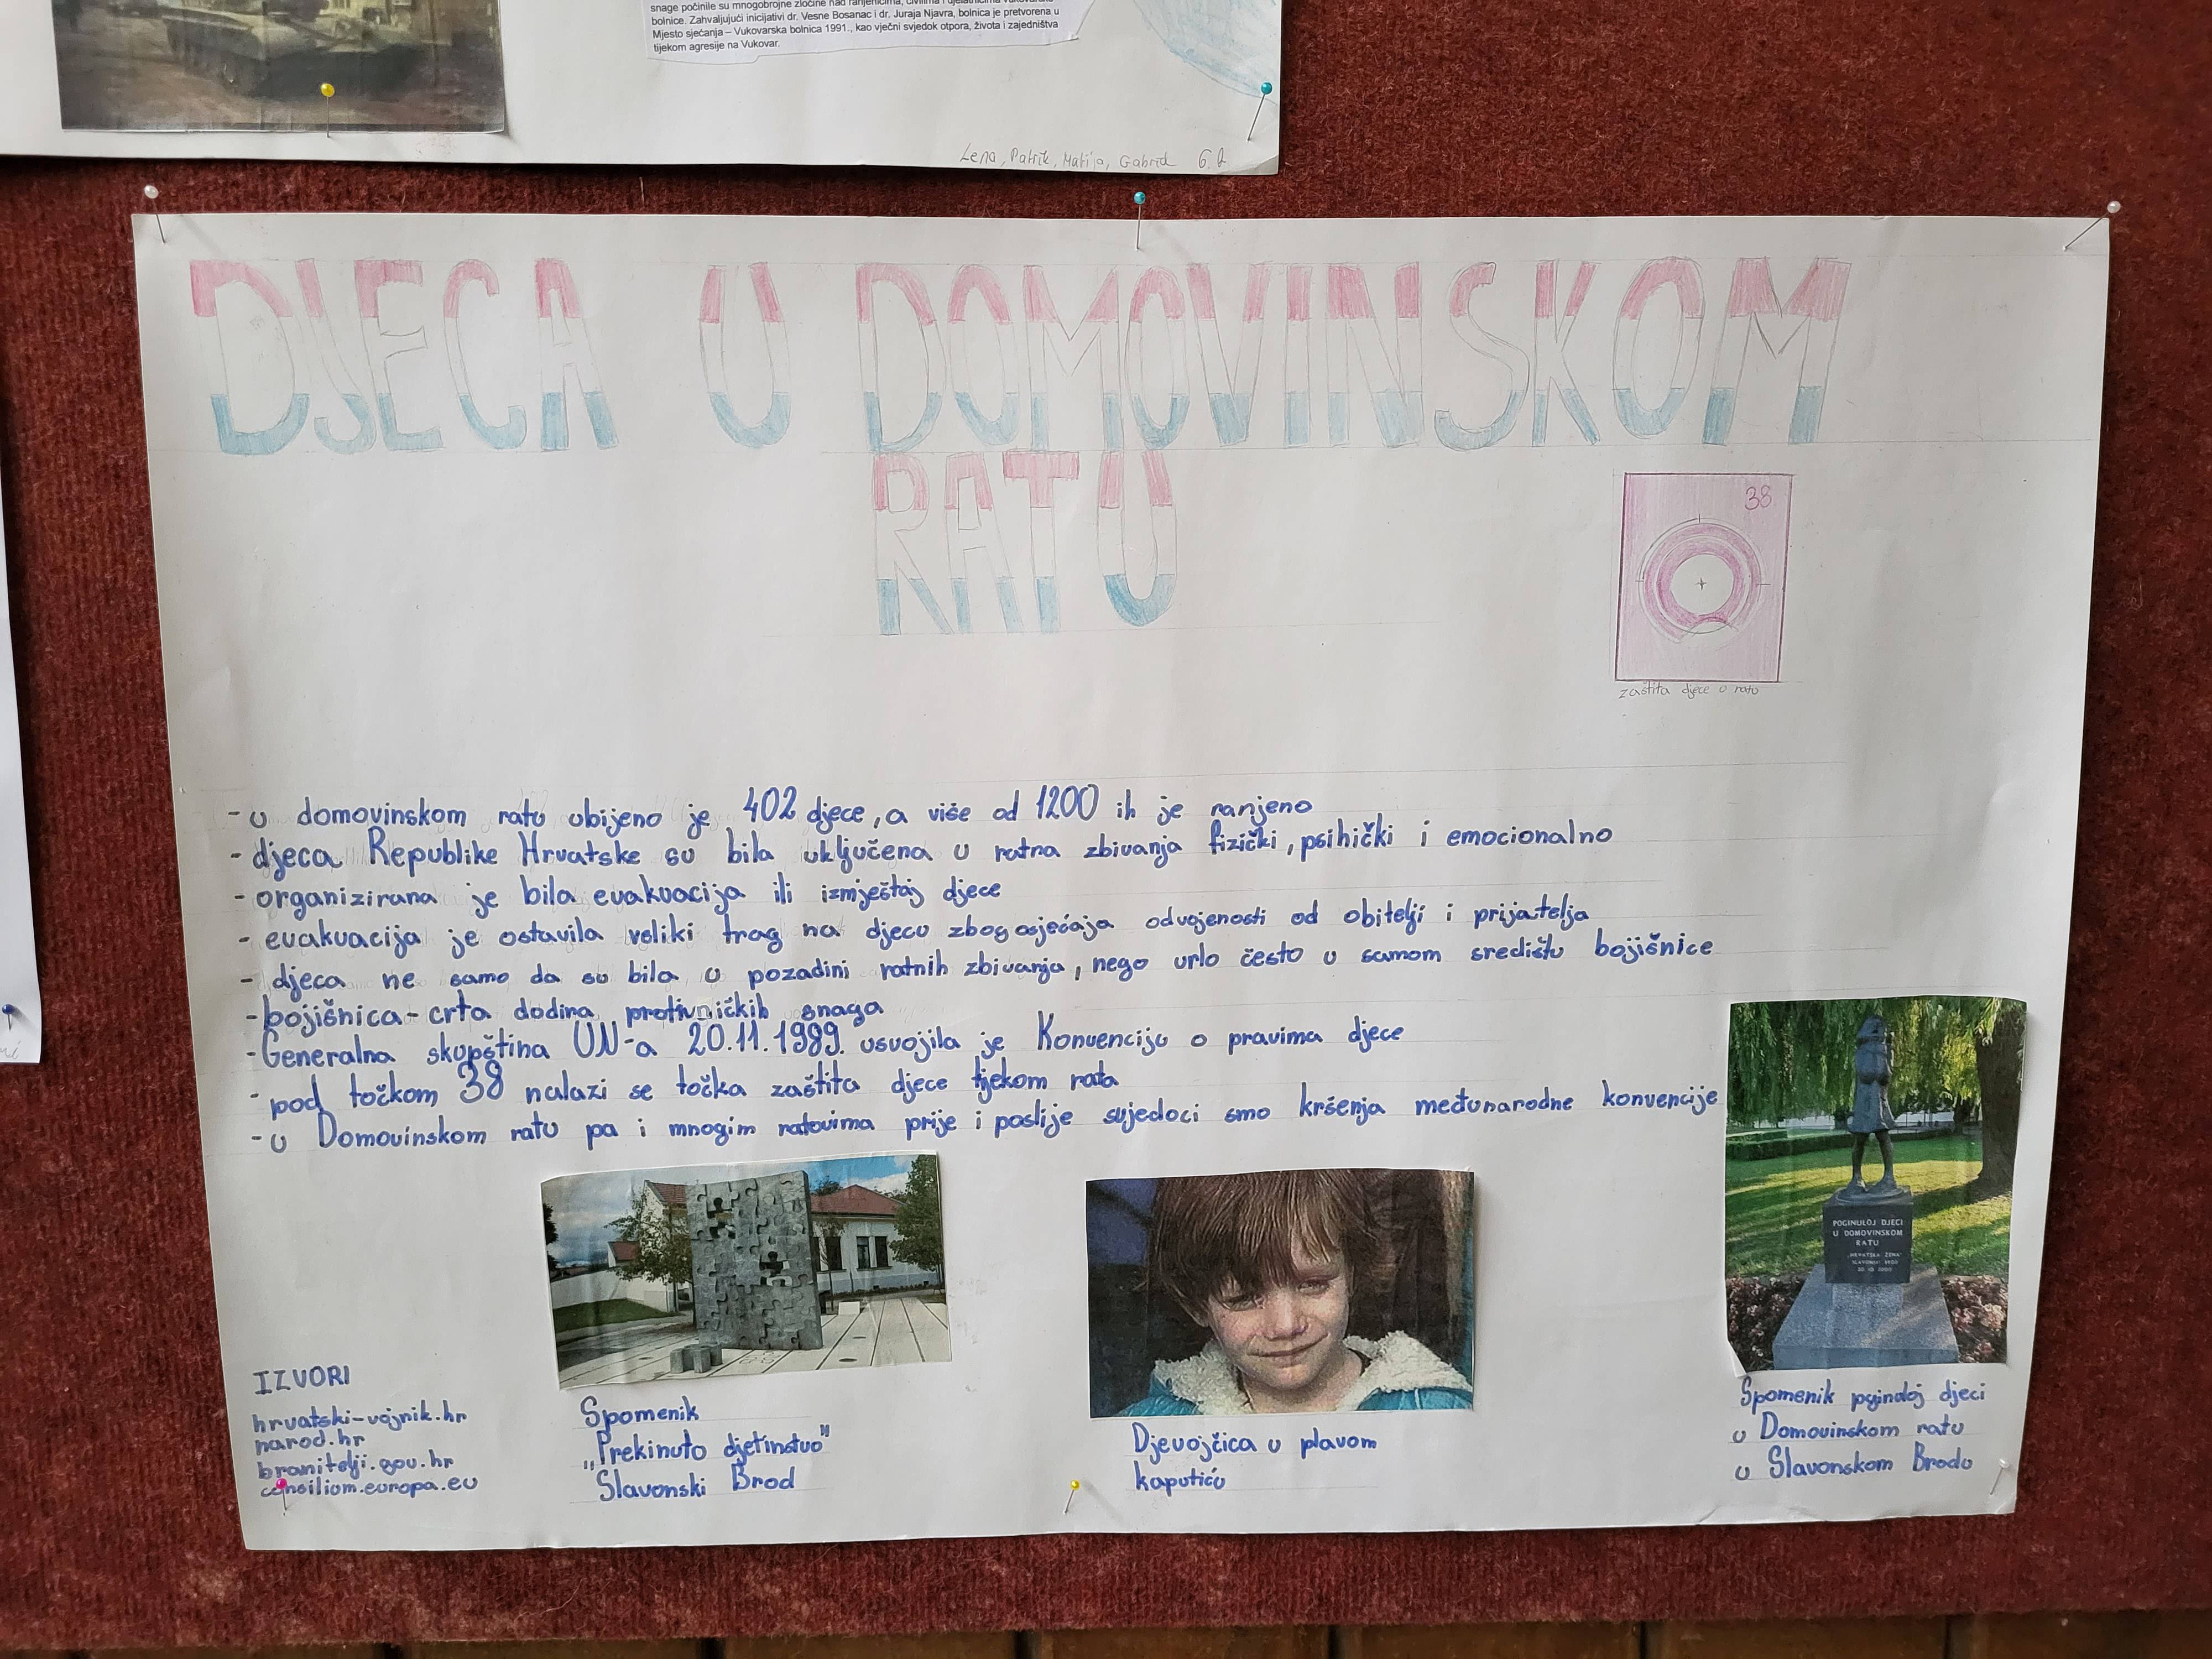 snage počinile su mnogobrojne zločine nad ranjenicima, civilima i djelatnicima vukovarske
bolnice. Zahvaljujući inicijativi dr. Vesne Bosanac i dr. Juraja Njavra, bolnica je pretvorena u
Mjesto sjećanja – Vukovarska bolnica 1991., kao vječni svjedok otpora, života i zajedništva
tijekom agresije na Vukovar.
Lena, Patrik, Matija, Gabriel 6.
DJECA U DOMOVINSKOM
RATU
38
zaštita djece u ratu
- u domovinskom ratu ubijeno je 402 djece, a više od 1200 ih je ranjeno
- djeca Republike Hrvatske su bila uključena u ratna zbivanja fizički, psihički i emocionalno
- organizirana je bila evakuacija ili izmještaj djece
- evakuacija je ostavila veliki trag na djecu zbog osjećaja odvojenosti od obitelji i prijatelja
- djeca ne samo da su bila u pozadini ratnih zbivanja, nego vrlo često u samom središtu bojišnice
- bojišnica - crta dodira protivničkih snaga
- Generalna skupština UN-a 20.11.1989. usvojila je Konvenciju o pravima djece
- pod točkom 38 nalazi se točka zaštita djece tijekom rata
- u Domovinskom ratu pa i mnogim ratovima prije i poslije svjedoci smo kršenja međunarodne konvencije
POGINULOJ DJECI
U DOMOVINSKOM
RATU
"HRVATSKA ŽENA"
SLAVONSKI BROD
IZVORI
hrvatski-vojnik.hr
narod.hr
branitelji.gov.hr
consilium.europa.eu
Spomenik
„Prekinuto djetinstvo"
Slavonski Brod
Djevojčica u plavom
kaputiću
Spomenik poginuloj djeci
u Domovinskom ratu
u Slavonskom Brodu